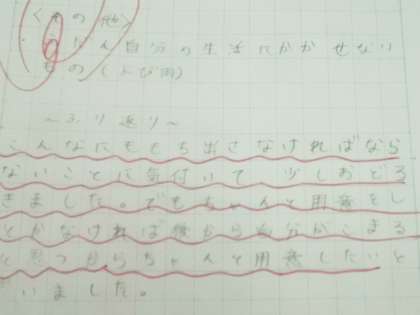 くその他〉
・ふだん自分の生活にかかせない
もの(よび用)
〜ふり返り〜
こんなにももち出さなければなら
ないことに気付いて少しおどろ
きました。でもちゃんと用意をし
とかなければ後から自分がこまる
と思うからちゃんと用意したいと
いました。